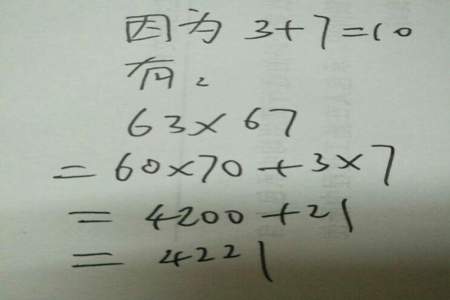 因为 3+7=10
有。
63×67
=60×70+3×7
=4200+21
=4221